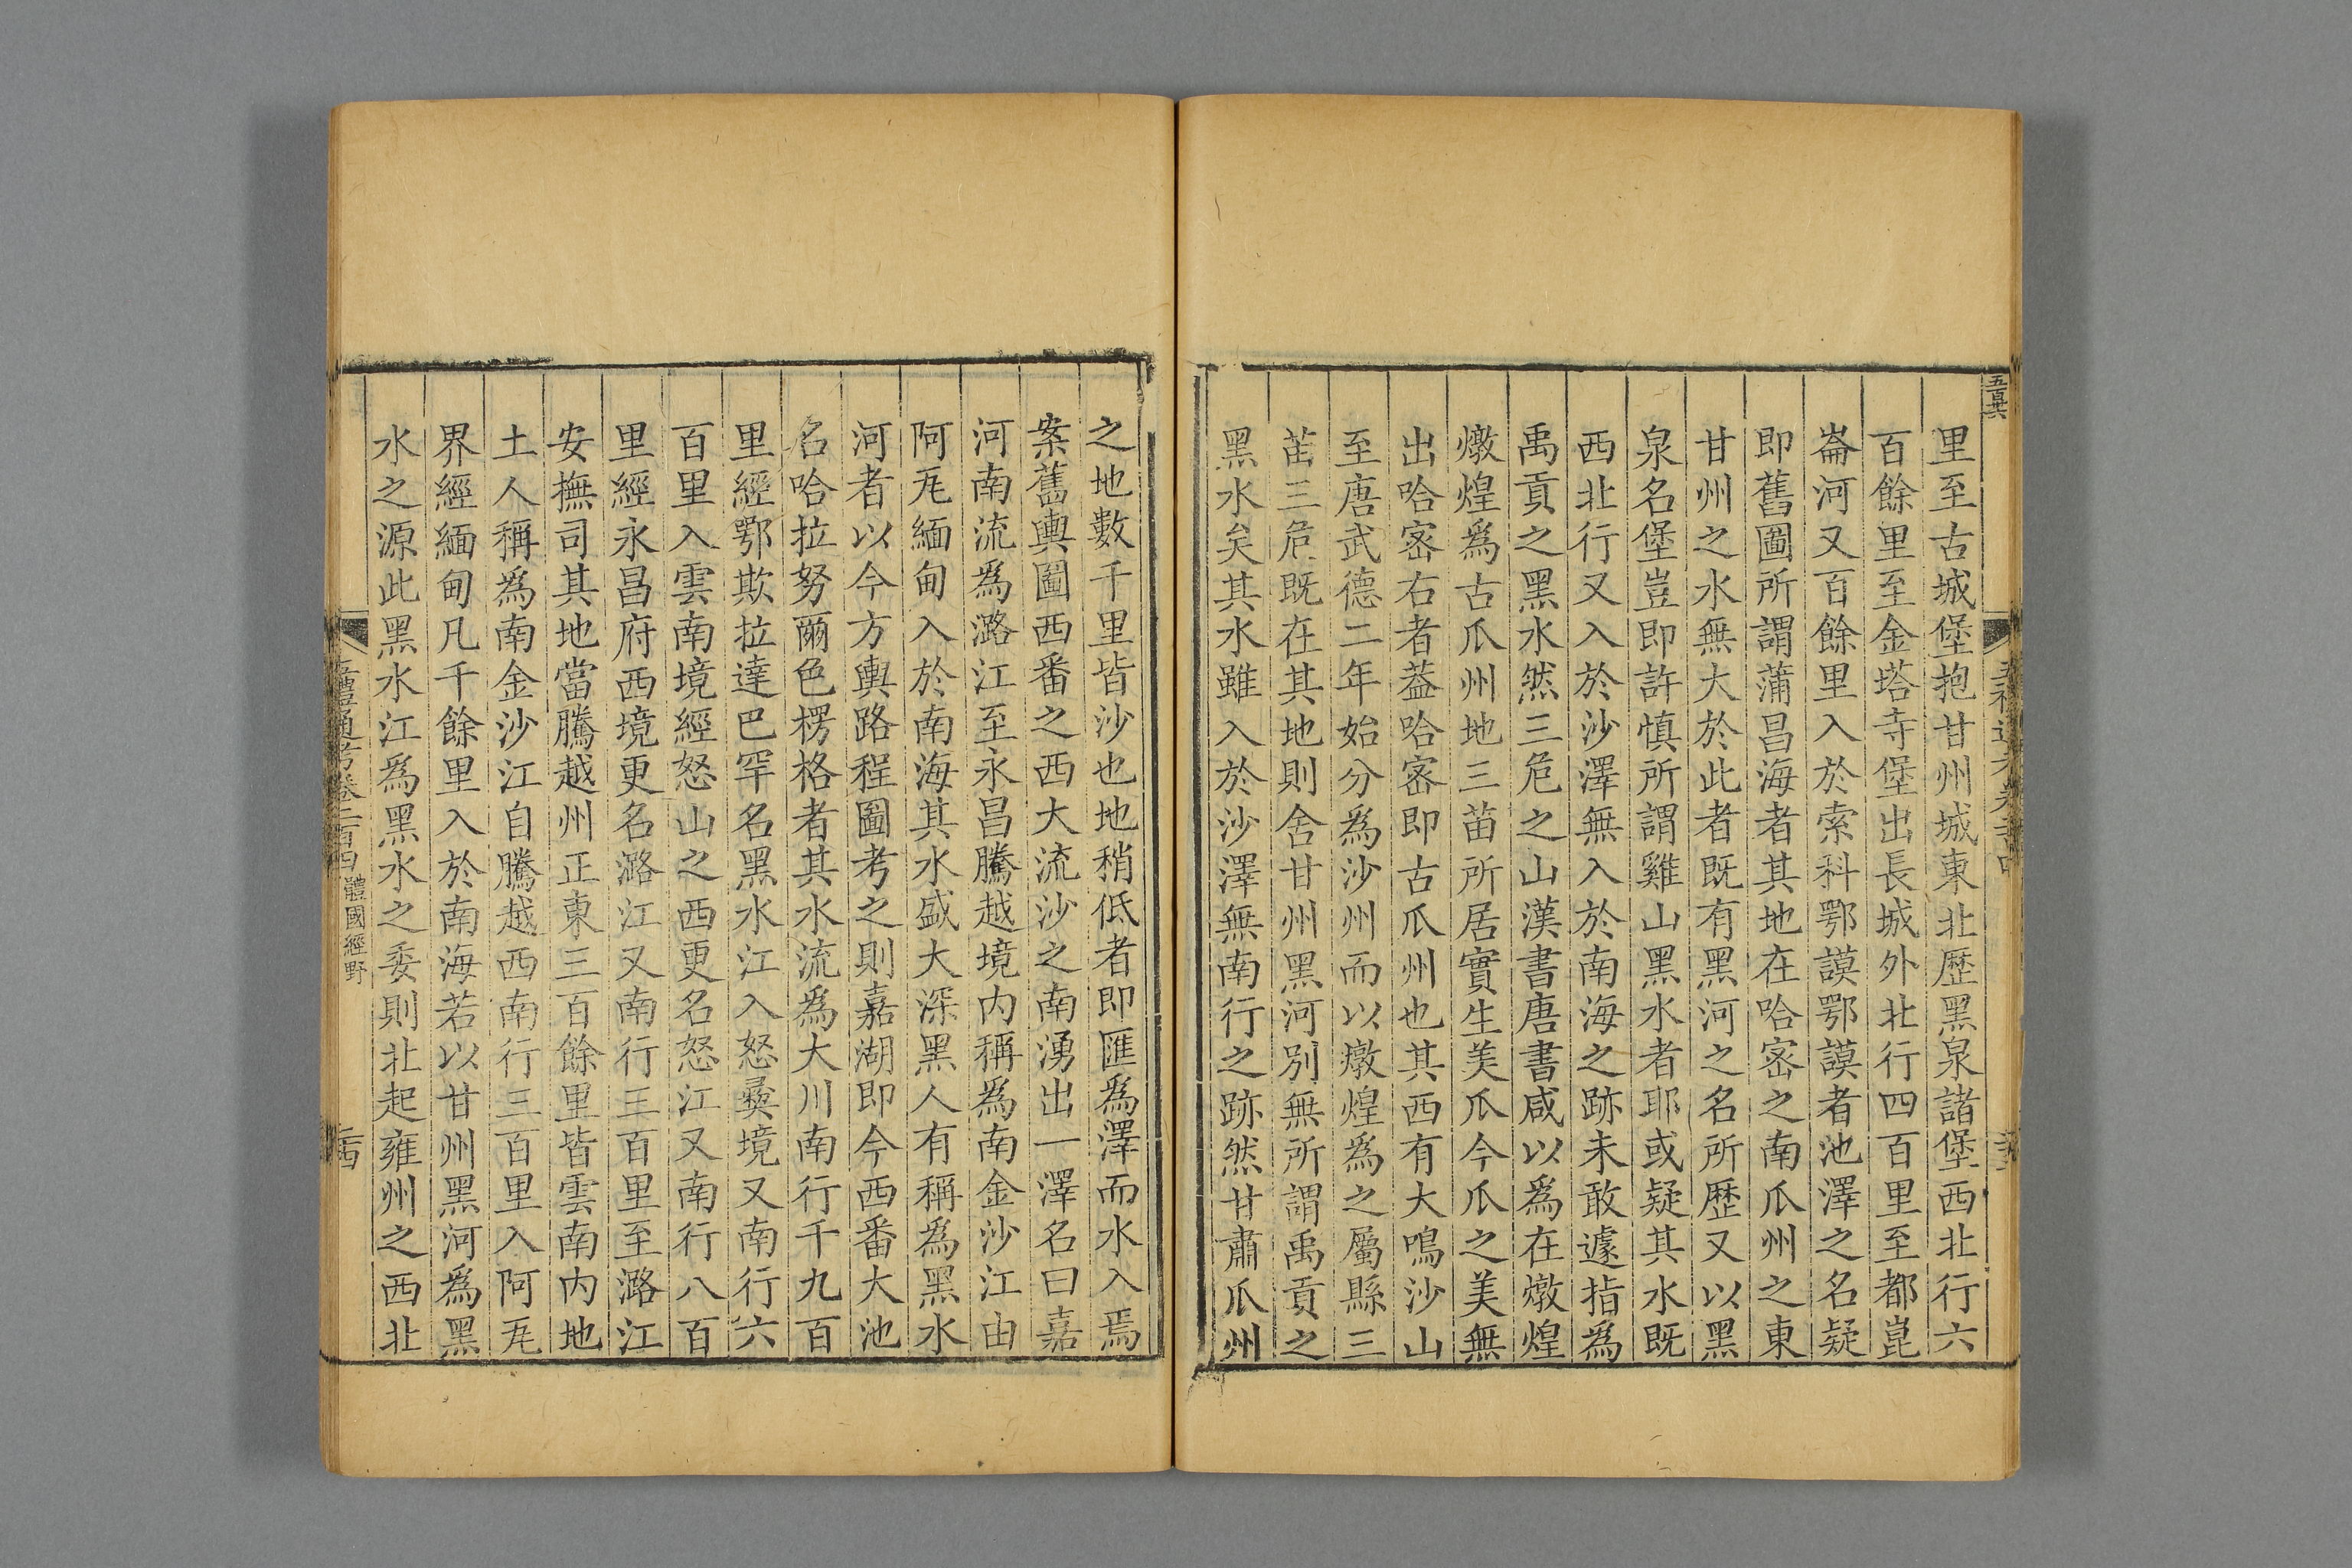 里至古城堡抱甘州城東北歷黑泉諸堡西北行六
百餘里至金塔寺堡出長城外北行四百里至都崑
崙河又百餘里入於索科鄂謨鄂謨者池澤之名疑
即舊圖所謂蒲昌海者其地在哈宻之南瓜州之東
甘州之水無大於此者既有黑河之名所歷又以黑
泉名堡豈即許慎所謂雞山黑水者耶或疑其水既
西北行又入於沙澤無入於南海之跡未敢遽指為
禹貢之黑水然三危之山漢書唐書咸以為在燉煌
燉煌爲古瓜州地三苗所居實生美瓜今瓜之美無
出哈宻右者葢哈宻即古瓜州也其西有大鳴沙山
至唐武德二年始分爲沙州而以燉煌爲之屬縣三
苖三危既在其地則舍甘州黑河別無所謂禹貢之
黑水矣其水雖入於沙澤無南行之跡然甘肅瓜州
之地數千里皆沙也地稍低者即匯爲澤而水入焉
案舊輿圖西番之西大流沙之南湧出一澤名曰嘉
河南流爲潞江至永昌騰越境内稱爲南金沙江由
阿㼚緬甸入於南海其水盛大深黑人有稱爲黑水
河者以今方輿路程圖考之則嘉湖即今西番大池
名哈拉努爾色楞格者其水流爲大川南行千九百
里經鄂欺拉達巴罕名黑水江入怒彜境又南行六
百里入雲南境經怒山之西更名怒江又南行八百
里經永昌府西境更名潞江又南行三百里至潞江
安撫司其地當騰越州正東三百餘里皆雲南内地
土人稱爲南金沙江自騰越西南行三百里入阿㼚
界經緬甸凡千餘里入於南海若以甘州黑河爲黑
水之源此黑水江爲黑水之委則北起雍州之西北
五禮通考卷二百四 體國經野